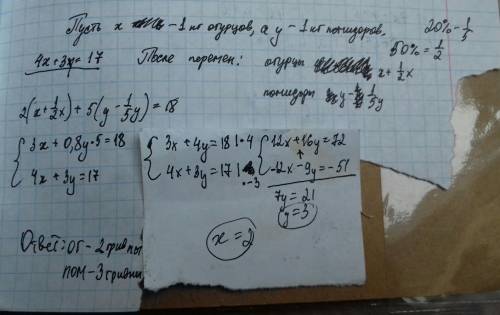 Пусть x - 1 кг огурцов, а y - 1 кг помидоров,
20% - 1/5
50% = 1/2
4x+3y=17
После перемен: огурцы x+1/2x
помидоры y-1/5y
2(x+1/2x)+5(y-1/5y)=18
{3x+0,8y·5=18
4x+3y=17
{3x+4y=18 |·4
4x+3y=17 |·-3
{12x+16y=72
+
-12x-9y=-51
7y=21
y=3
x=2
Ответ: ог - 2 гривны
пом - 3 гривны